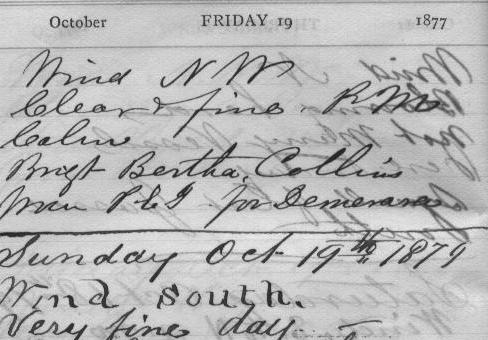 October FRIDAY 19 1877
Wind N W
Clear & fine P.M.
Calm
Brigt Bertha, Collins
from P & I for Demerara
Sunday Oct 19th 1879
Wind South.
Very fine day.